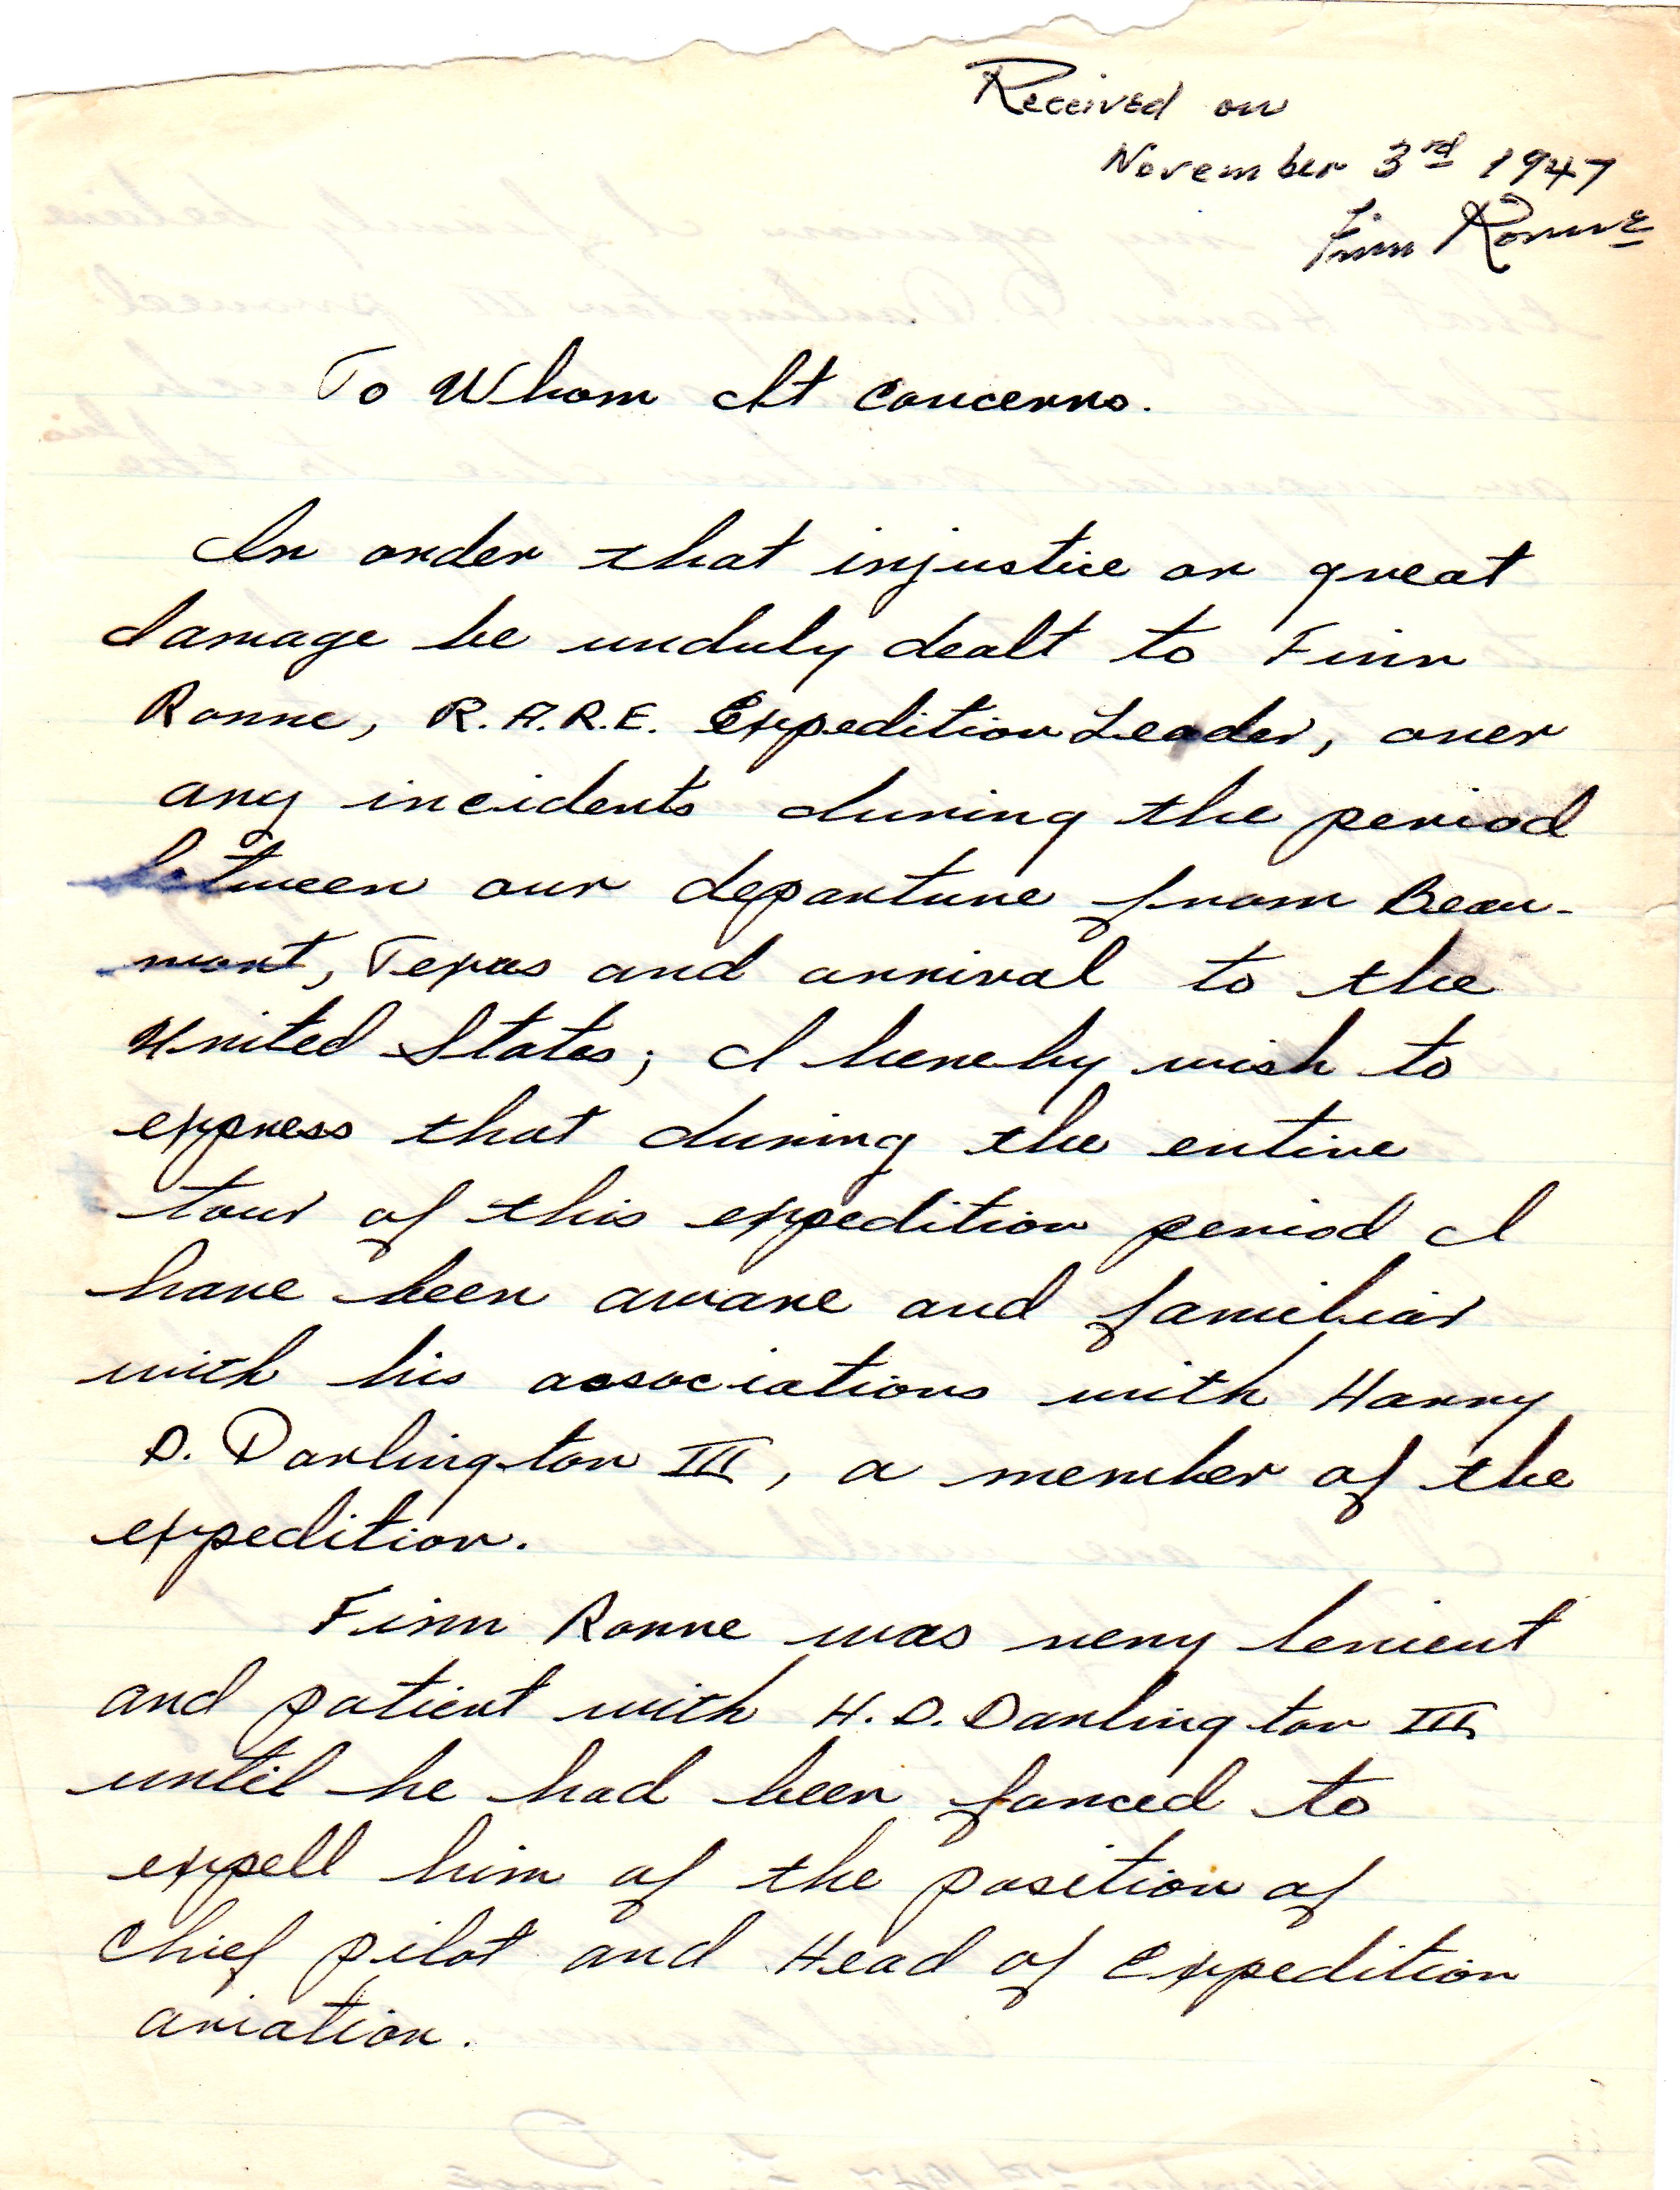 Received on
November 3rd 1947
Finn Ronne
To Whom It Concerns.
In order that injustice or great
damage be unduly dealt to Finn
Ronne, R.A.R.E. Expedition Leader, over
any incidents during the period
between our departure from Beau-
mont, Texas and arrival to the
United States; I hereby wish to
express that during the entire
tour of this expedition period I
have been aware and familiar
with his associations with Harry
D. Darlington III, a member of the
expedition.
Finn Ronne was very lenient
and patient with H.D. Darlington III
until he had been forced to
expell him of the position of
Chief pilot and Head of Expedition
aviation.